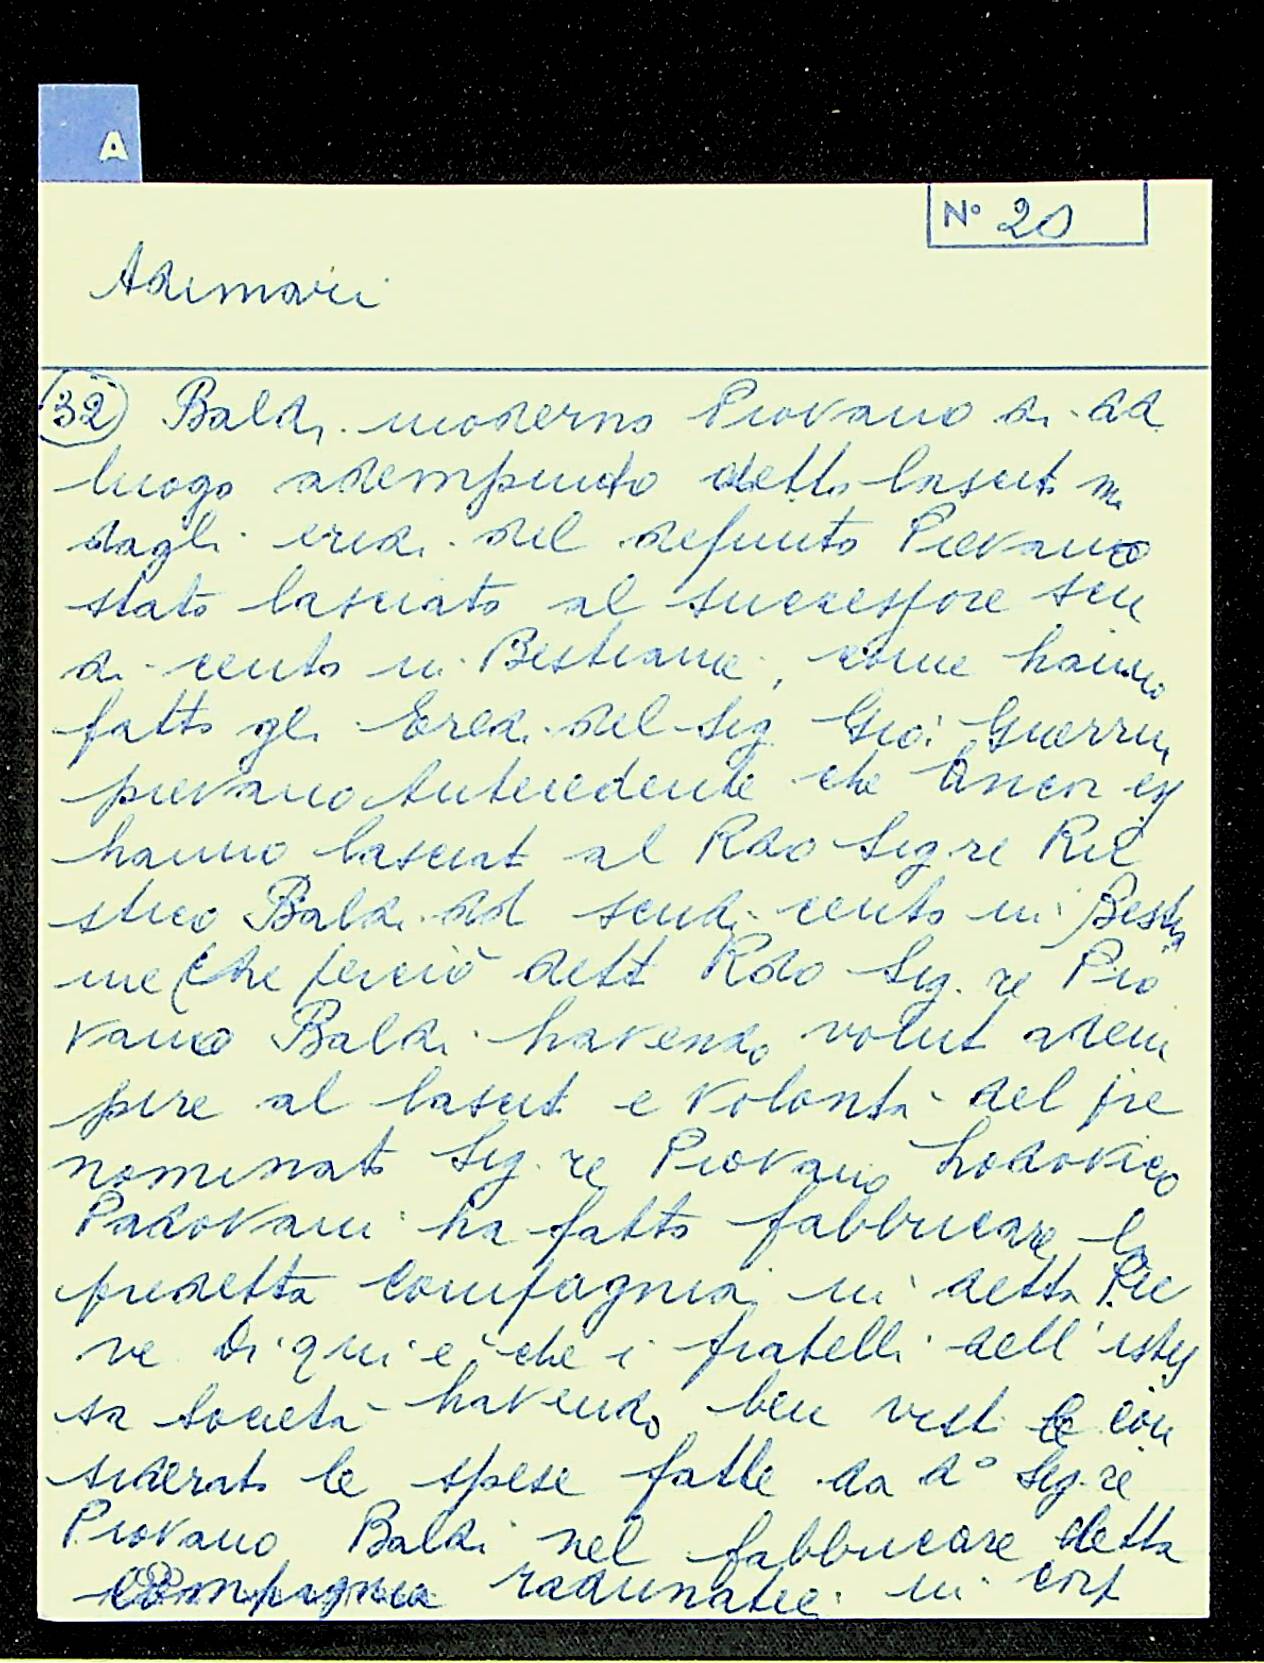 A
N° 20
Adimari
32 Baldi moderno Piovano di dd
luogo adempiuto detto lascito ma
dagli eredi del defunto Pievano
stato lasciato al successore scu
di cento in Bestiame, come hanno
fatto gli Eredi del Sig Gio: Guerrini
pievano Antecedente che Ancor essi
hanno lasciat al Rdo Sigre Ri
stico Baldi dd scudi cento in Bestia
me (che perciò dett Rdo Sig.re Pio
vano Baldi havendo volut adem
pire al lascit e volontà del pre
nominato Sig.re Piovano Lodovico
Padovani ha fatto fabbricare la
predetta Compagnia in detta Pie
ve Di qui è che i fratelli dell'istes
sa Società havendo ben visti e con
siderato le spese fatte da d° Sig.re
Piovano Baldi nel fabbricare detta
Compagnia radunatei in corp